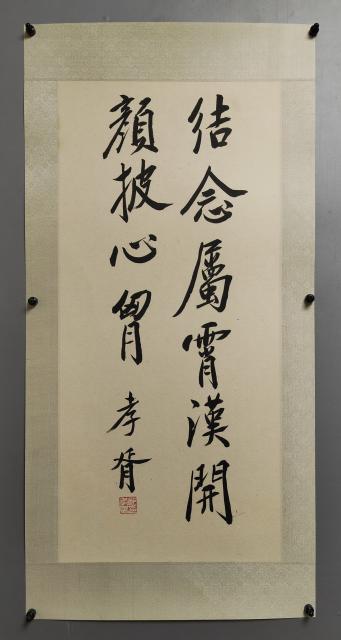 結念屬霄漢開
顏披心胷
孝胥